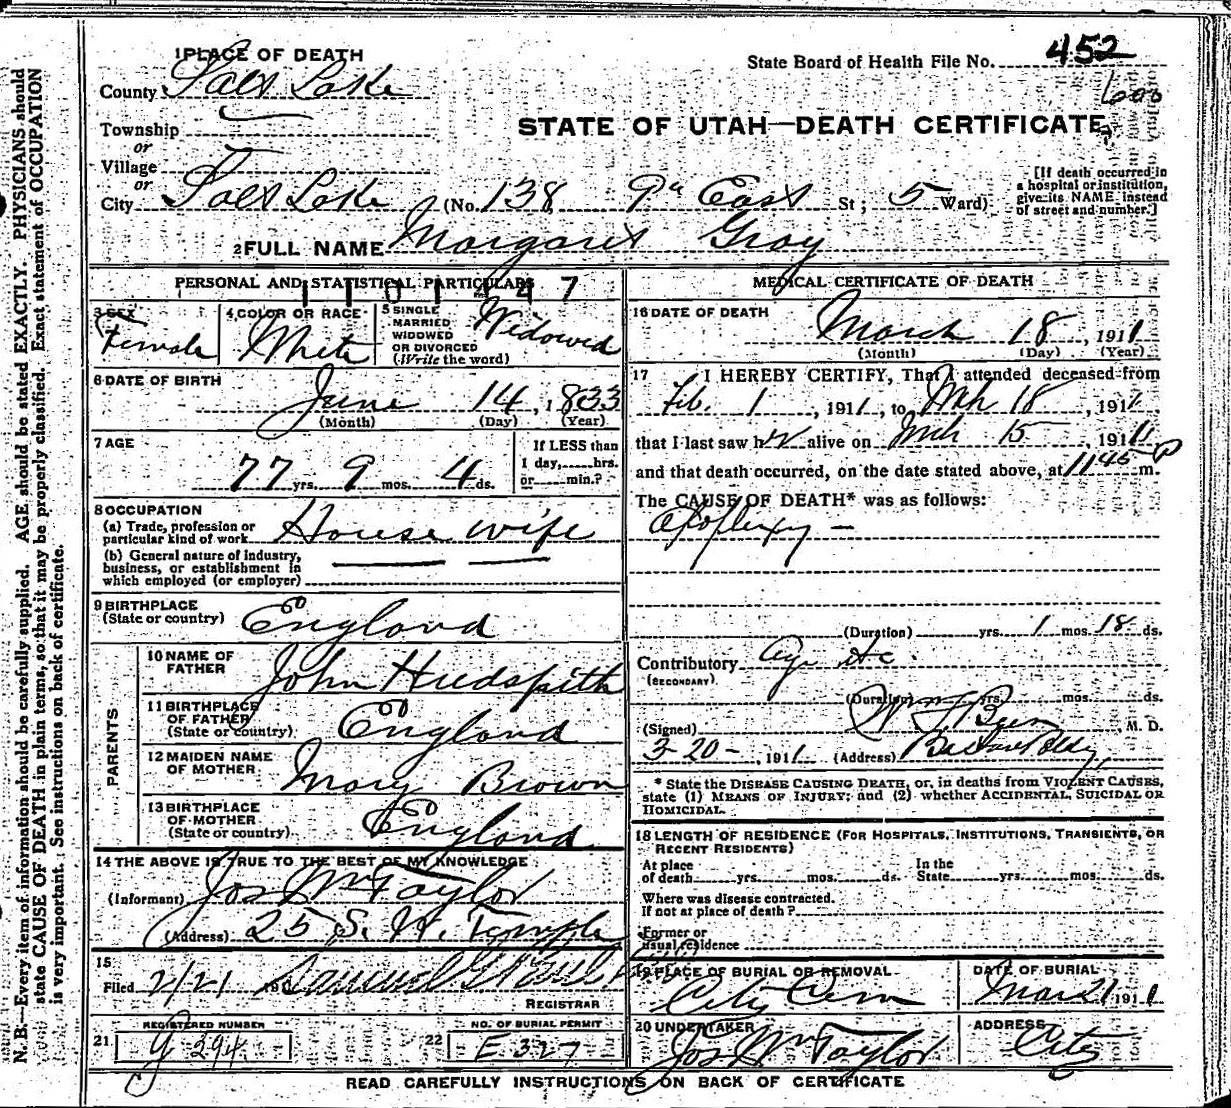 1 PLACE OF DEATH
State Board of Health File No. 452
County Salt Lake
600
Township
or
STATE OF UTAH—DEATH CERTIFICATE
Village
or
City Salt Lake (No. 138 East St; 5 Ward)
[If death occurred in
a hospital or institution,
give its NAME instead
of street and number.]
2 FULL NAME Margaret Gray
PERSONAL AND STATISTICAL PARTICULARS
1101447
3 SEX
Female
4 COLOR OR RACE
White
5 SINGLE
MARRIED
WIDOWED
OR DIVORCED
(Write the word)
Widowed
6 DATE OF BIRTH
June 14, 1833
(Month) (Day) (Year)
7 AGE
77 yrs. 9 mos. 4 ds.
If LESS than
1 day, hrs.
or min.?
8 OCCUPATION
(a) Trade, profession or
particular kind of work House wife
(b) General nature of industry,
business, or establishment in
which employed (or employer)
9 BIRTHPLACE
(State or country) England
PARENTS
10 NAME OF
FATHER John Hudspith
11 BIRTHPLACE
OF FATHER
(State or country) England
12 MAIDEN NAME
OF MOTHER Mary Brown
13 BIRTHPLACE
OF MOTHER
(State or country) England
14 THE ABOVE IS TRUE TO THE BEST OF MY KNOWLEDGE
(Informant) Jos Wm Taylor
(Address) 25 S. W. Temple
15
Filed 2/21 191
REGISTRAR
REGISTERED NUMBER
21 394
NO. OF BURIAL PERMIT
22 E 327
MEDICAL CERTIFICATE OF DEATH
16 DATE OF DEATH
March 18, 1911
(Month) (Day) (Year)
17 I HEREBY CERTIFY, That I attended deceased from
Feb. 1, 1911, to Mch 18, 1911,
that I last saw her alive on Mch 15 1911
and that death occurred, on the date stated above, at 1145 P m.
The CAUSE OF DEATH* was as follows:
Apoplexy —
(Duration) yrs. 1 mos. 18 ds.
Contributory Age &c.
(SECONDARY)
(Duration) yrs. mos. ds.
(Signed) M. D.
3-20-, 1911 (Address)
* State the DISEASE CAUSING DEATH, or, in deaths from VIOLENT CAUSES,
state (1) MEANS OF INJURY; and (2) whether ACCIDENTAL, SUICIDAL OR
HOMICIDAL.
18 LENGTH OF RESIDENCE (FOR HOSPITALS, INSTITUTIONS, TRANSIENTS, OR
RECENT RESIDENTS)
At place
of death yrs. mos. ds.
In the
State yrs. mos. ds.
Where was disease contracted.
If not at place of death?
Former or
usual residence
19 PLACE OF BURIAL OR REMOVAL
City Cem
DATE OF BURIAL
Mar 21 1911
20 UNDERTAKER
Jos Wm Taylor
ADDRESS
City
READ CAREFULLY INSTRUCTIONS ON BACK OF CERTIFICATE
N. B.—Every item of information should be carefully supplied. AGE should be stated EXACTLY. PHYSICIANS should
state CAUSE OF DEATH in plain terms, so that it may be properly classified. Exact statement of OCCUPATION
is very important. See instructions on back of certificate.